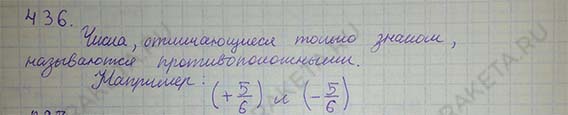 436.
Числа, отличающиеся только знаком,
называются противоположными.
Например: (+5/6) и (-5/6)